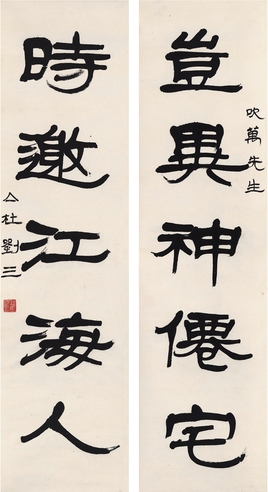 豈異神僊宅
吹萬先生
時邀江海人
亼杜劉三